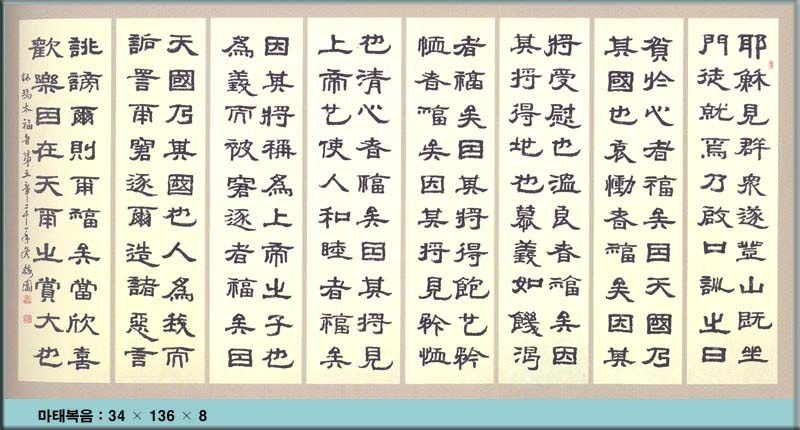 耶穌見群衆遂登山既坐
門徒就焉乃啟口訓之曰
貧於心者福矣因天國乃
其國也哀慟者福矣因其
將受慰也溫良者福矣因
其將得地也慕義如饑渴
者福矣因其將得飽也矜
恤者福矣因其將見矜恤
也清心者福矣因其將見
上帝也使人和睦者福矣
因其將稱爲上帝之子也
爲義而被窘逐者福矣因
天國乃其國也人爲我而
詬詈爾窘逐爾造諸惡言
誹謗爾則爾福矣當欣喜
歡樂因在天爾之賞大也
馬太福音第五章 梅園
마태복음 : 34 × 136 × 8